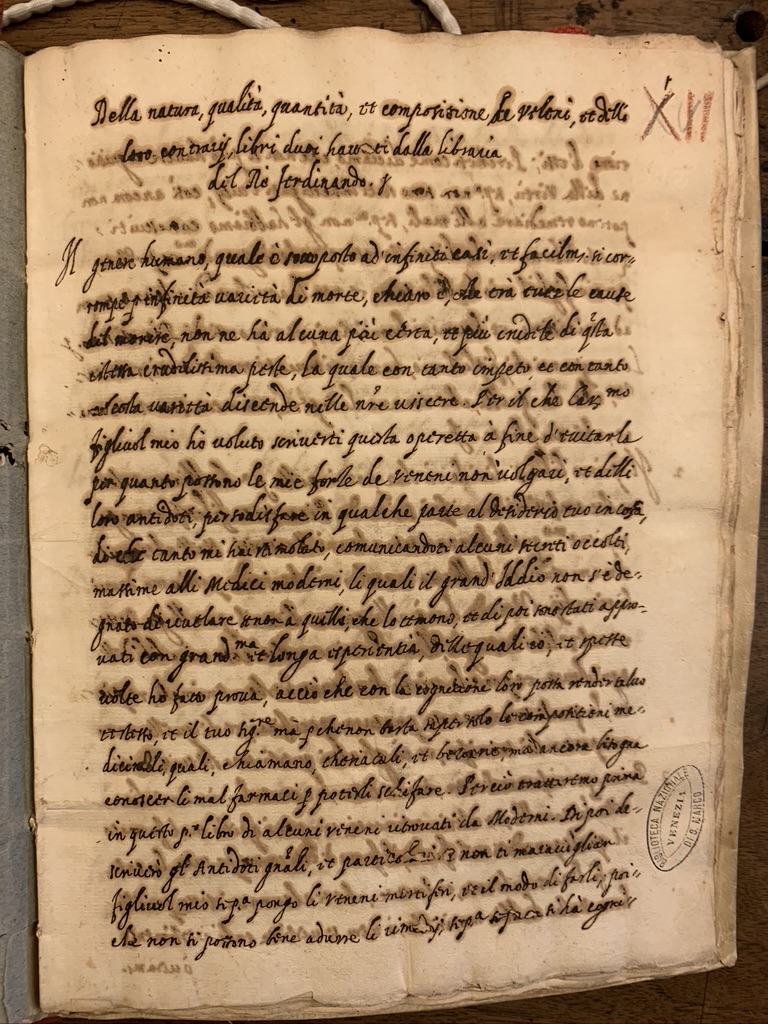 Della natura, qualità, quantità, et compositione de Veleni, et delli
loro contrarij, libri duoi havuti dalla libraria
del Rè ferdinando.
XII
Il genere humano, quale è sottoposto ad' infiniti casi, et facilm.te si cor=
rompe p infinità varietà di morte, chiaro è, che trà tutte le cause
del morire, non ne hà alcuna più certa, et più crudele di q.sta
istessa crudelissima peste, la quale con tanto impeto et con tanto
occolta varietà discende nelle nr̃e viscere. Per il che Car.mo
figliuol mio hò voluto scriverti questa operetta à fine d'evitarla
per quanto possono le mie forze de veneni non volgari, et delli
loro antidoti, per sodisfare in qualche parte al desiderio tuo in cosa,
di che tanto mi hai stimolato, comunicandoti alcuni secreti occolti,
massime alli Medici moderni, li quali il grand' Iddio non s'è de=
gnato di rivelare se non à quelli, che lo temono, et di poi sono stati appro=
vati con grand.ma et longa esperientia, delle quali io, et spesse
volte hò fatto prova, acciò che con la cognitione loro possa render salvo
te stesso, et il tuo sig.re mà p che non basta saper solo le compositioni me=
dicinali, quali, chiamano, theriacali, et bezoarie, mà ancora bisogna
conoscer li mal farmaci p poterli schifare. Perciò trattaremo prima
in questo p.o libro di alcuni veneni ritrovati da Moderni. Di poi de=
scriverò gl' Antidoti gñali, et particolari. non ti maravigliar
figliuol mio se p.a pongo li veneni mortiferi, et il modo di farli, poi=
che non si possono bene adurre li rimedij, se p.a non si hà cogni=
BIBLIOTECA NAZIONALE
VENEZIA
DI S. MARCO